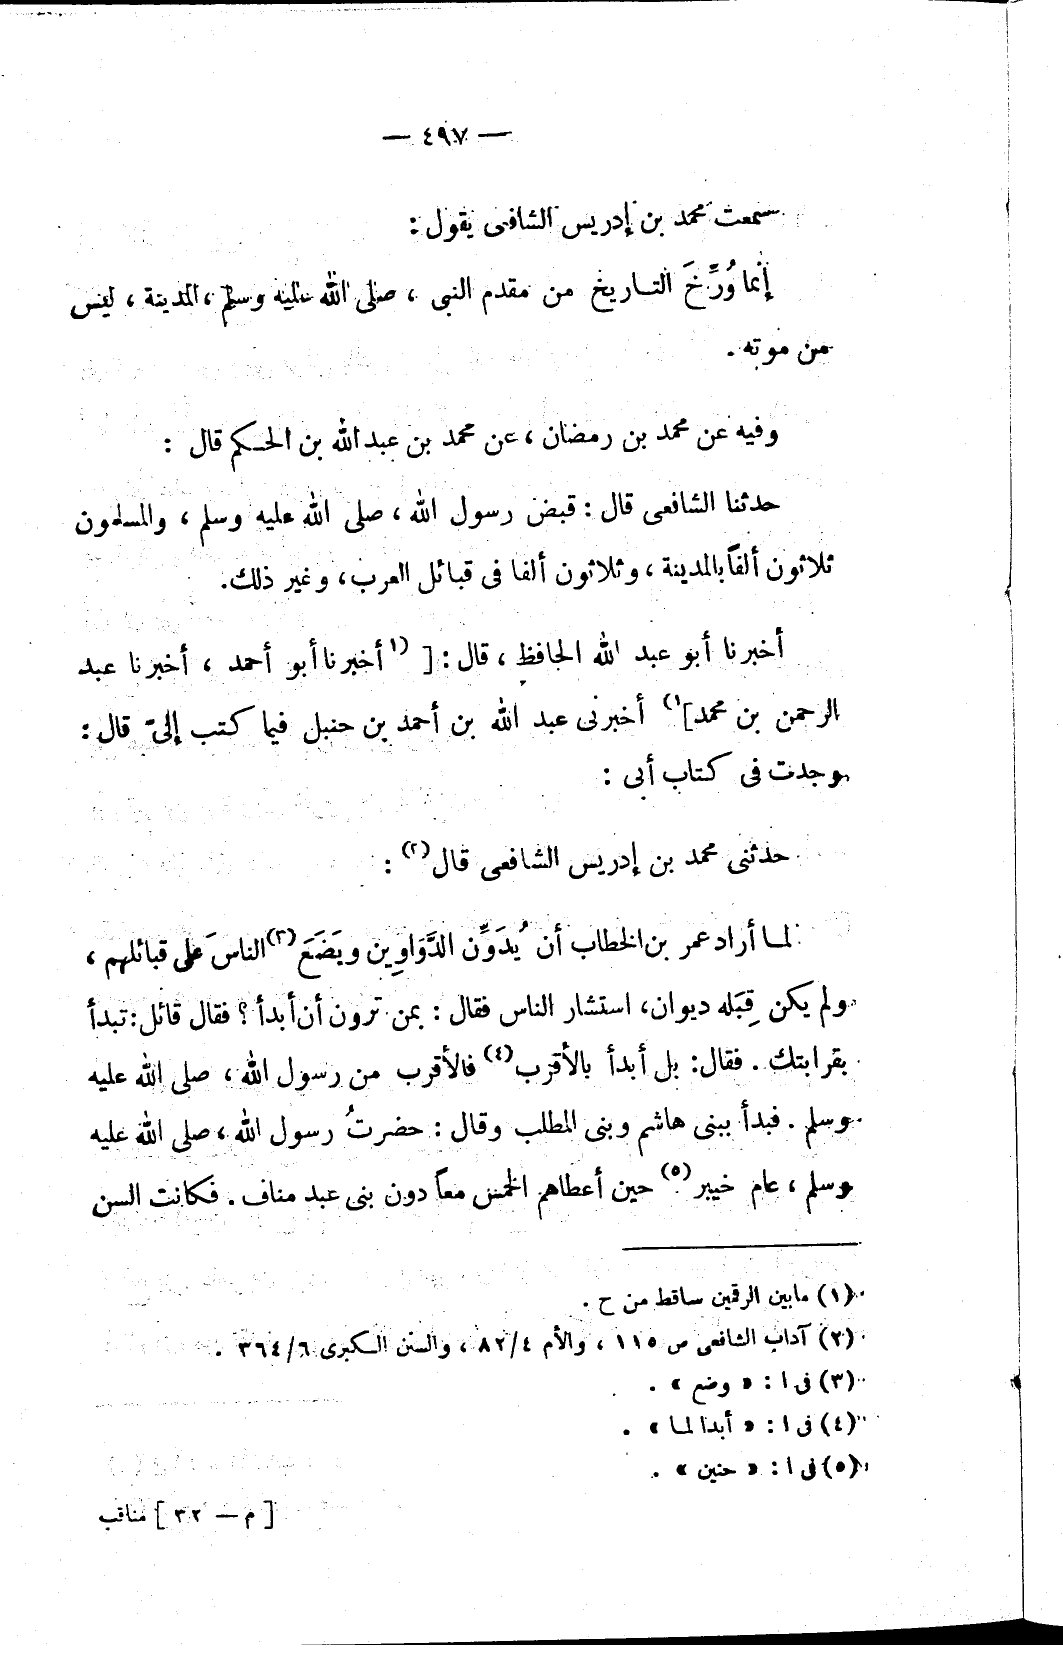 — ٤٩٧ —
سمعت محمد بن إدريس الشافعى يقول :
إنما وُرِّخَ التـاريخ من مقدم النبى ، صلى الله عليه وسلم ، المدينة ، ليس
من موته .
وفيه عن محمد بن رمضان ، عن محمد بن عبد الله بن الحـكم قال :
حدثنا الشافعى قال : قبض رسول الله ، صلى الله عليه وسلم ، والمسلمون
ثلاثون ألفاً بالمدينة ، وثلاثون ألفا فى قبائل العرب ، وغير ذلك .
أخبرنا أبو عبد الله الحافظ ، قال : [ (١ أخبرنا أبو أحمد ، أخبرنا عبد
الرحمن بن محمد ] ١) أخبرنى عبد الله بن أحمد بن حنبل فيما كتب إلىّ قال :
وجدت فى كتاب أبى :
حدثنى محمد بن إدريس الشافعى قال (٢) :
لمـا أراد عمر بن الخطاب أن يُدَوِّن الدَّوَاوِين ويَضَعَ (٣) الناسَ على قبائلهم ،
ولم يكن قِبَله ديوان ، استشار الناس فقال : بمن ترون أن أبدأ ؟ فقال قائل : تبدأ
بقرابتك . فقال : بل أبدأ بالأقرب (٤) فالأقرب من رسول الله ، صلى الله عليه
وسلم . فبدأ ببنى هاشم وبنى المطلب وقال : حضرتُ رسول الله ، صلى الله عليه
وسلم ، عام خيبر (٥) حين أعطاهم الخمس معاً دون بنى عبد مناف . فكانت السن
(١) مابين الرقمين ساقط من ح .
(٢) آداب الشافعى ص ١١٥ ، والأم ٨٢/٤ ، والسنن الـكبرى ٣٦٤/٦ .
(٣) فى ا : « وضع » .
(٤) فى ا : « أبدا لمـا » .
(٥) فى ا : « حنين » .
[ م — ٣٢ ] مناقب